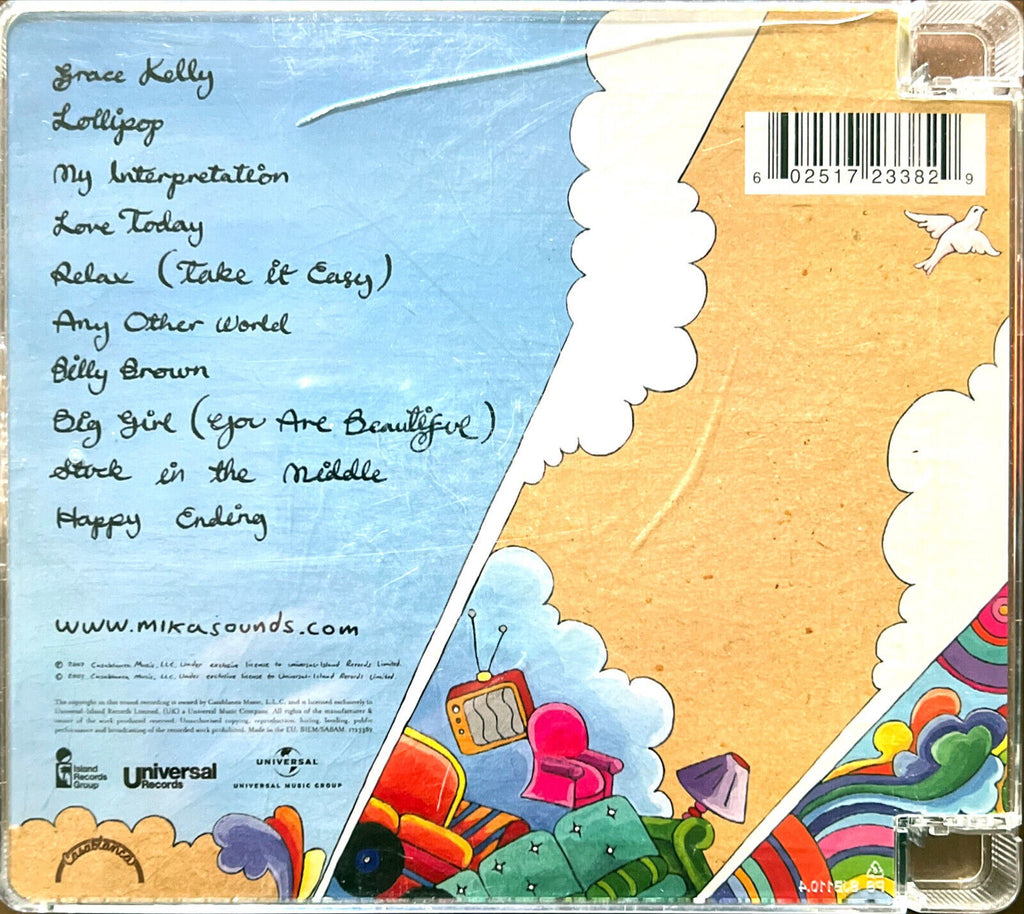 Grace Kelly
Lollipop
My Interpretation
Love Today
Relax (Take it Easy)
Any Other World
Billy Brown
Big Girl (You Are Beautiful)
Stuck in the Middle
Happy Ending
www.mikasounds.com
℗ 2007 Casablanca Music, LLC. Under exclusive license to Universal-Island Records Limited.
© 2007 Casablanca Music, LLC. Under exclusive license to Universal-Island Records Limited.
The copyright in this sound recording is owned by Casablanca Music, L.L.C. and is licensed exclusively to
Universal Island Records Limited, (UK) a Universal Music Company. All rights of the manufacturer &
owner of the work produced reserved. Unauthorised copying, reproduction, hiring, lending, public
performance and broadcasting of the recorded work prohibited. Made in the EU. BIEM/SABAM. 1723387
Island
Records
Group
Universal
Records
UNIVERSAL
UNIVERSAL MUSIC GROUP
Casablanca
6 02517 23382 9